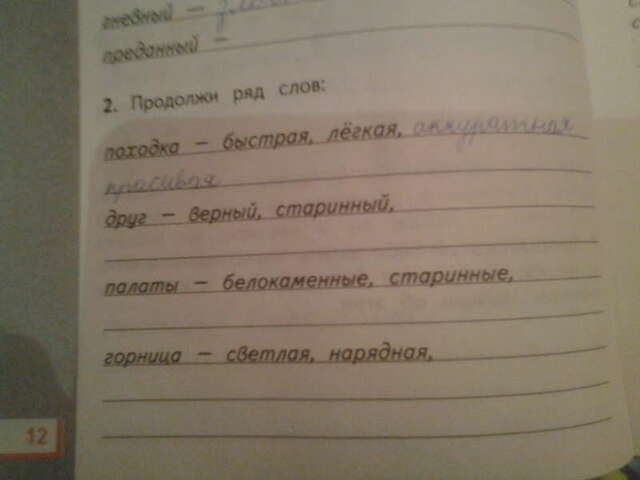 гневный –
преданный –
2. Продолжи ряд слов:
походка – быстрая, лёгкая, аккуратная
красивая
друг – верный, старинный,
палаты – белокаменные, старинные,
горница – светлая, нарядная,
12